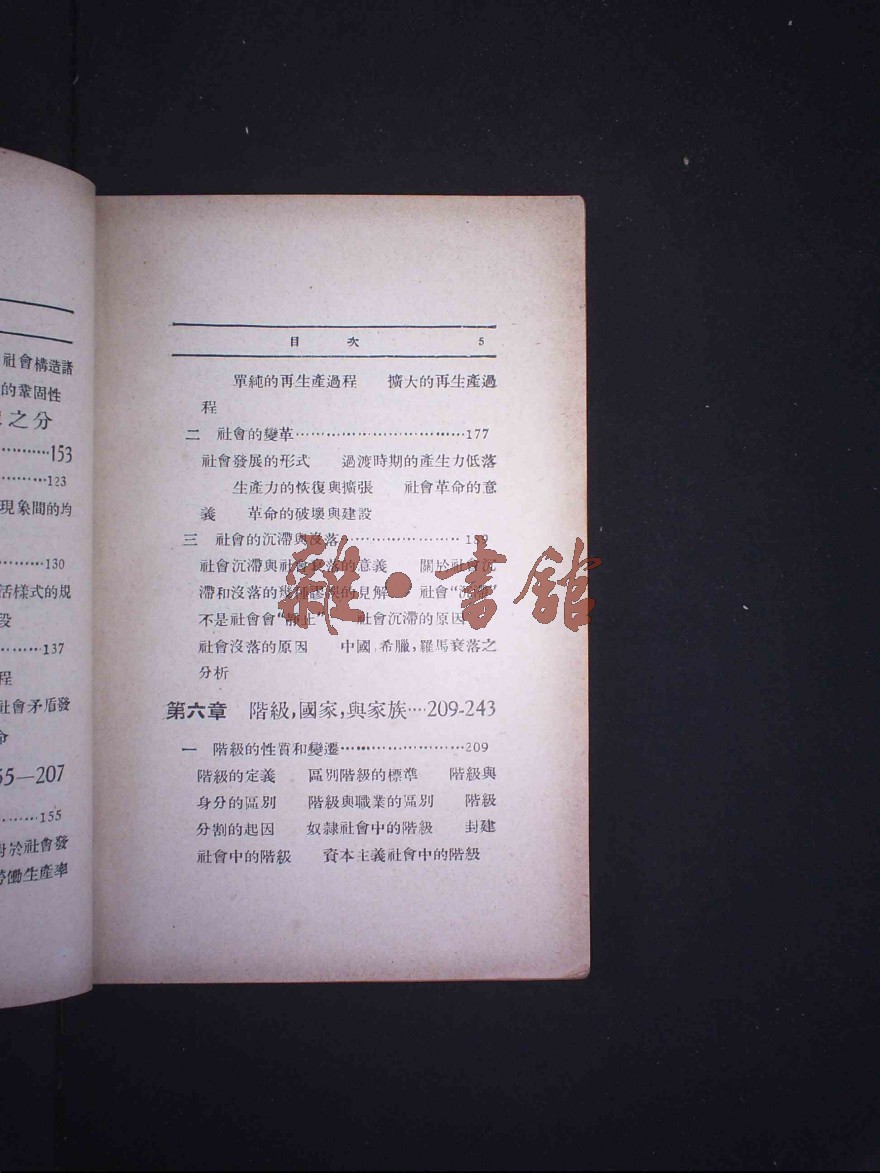 社會構造諸
的鞏固性
之分
…………153
…………123
現象間的均
…………130
活樣式的規
段
…………137
程
社會矛盾發
命
55—207
…………155
對於社會發
勞働生產率
目 次 5
單純的再生產過程 擴大的再生產過
程
二 社會的變革…………………………177
社會發展的形式 過渡時期的產生力低落
生產力的恢復與擴張 社會革命的意
義 革命的破壞與建設
三 社會的沉滯與沒落………………… 159
社會沉滯與社會衰落的意義 關於社會沉
滯和沒落的幾種謬誤的見解 社會“沉滯”
不是社會會“靜止” 社會沉滯的原因
社會沒落的原因 中國,希臘,羅馬衰落之
分析
第六章 階級,國家,與家族…209-243
一 階級的性質和變遷……………………209
階級的定義 區別階級的標準 階級與
身分的區別 階級與職業的區別 階級
分割的起因 奴隸社會中的階級 封建
社會中的階級 資本主義社會中的階級
雜·書館